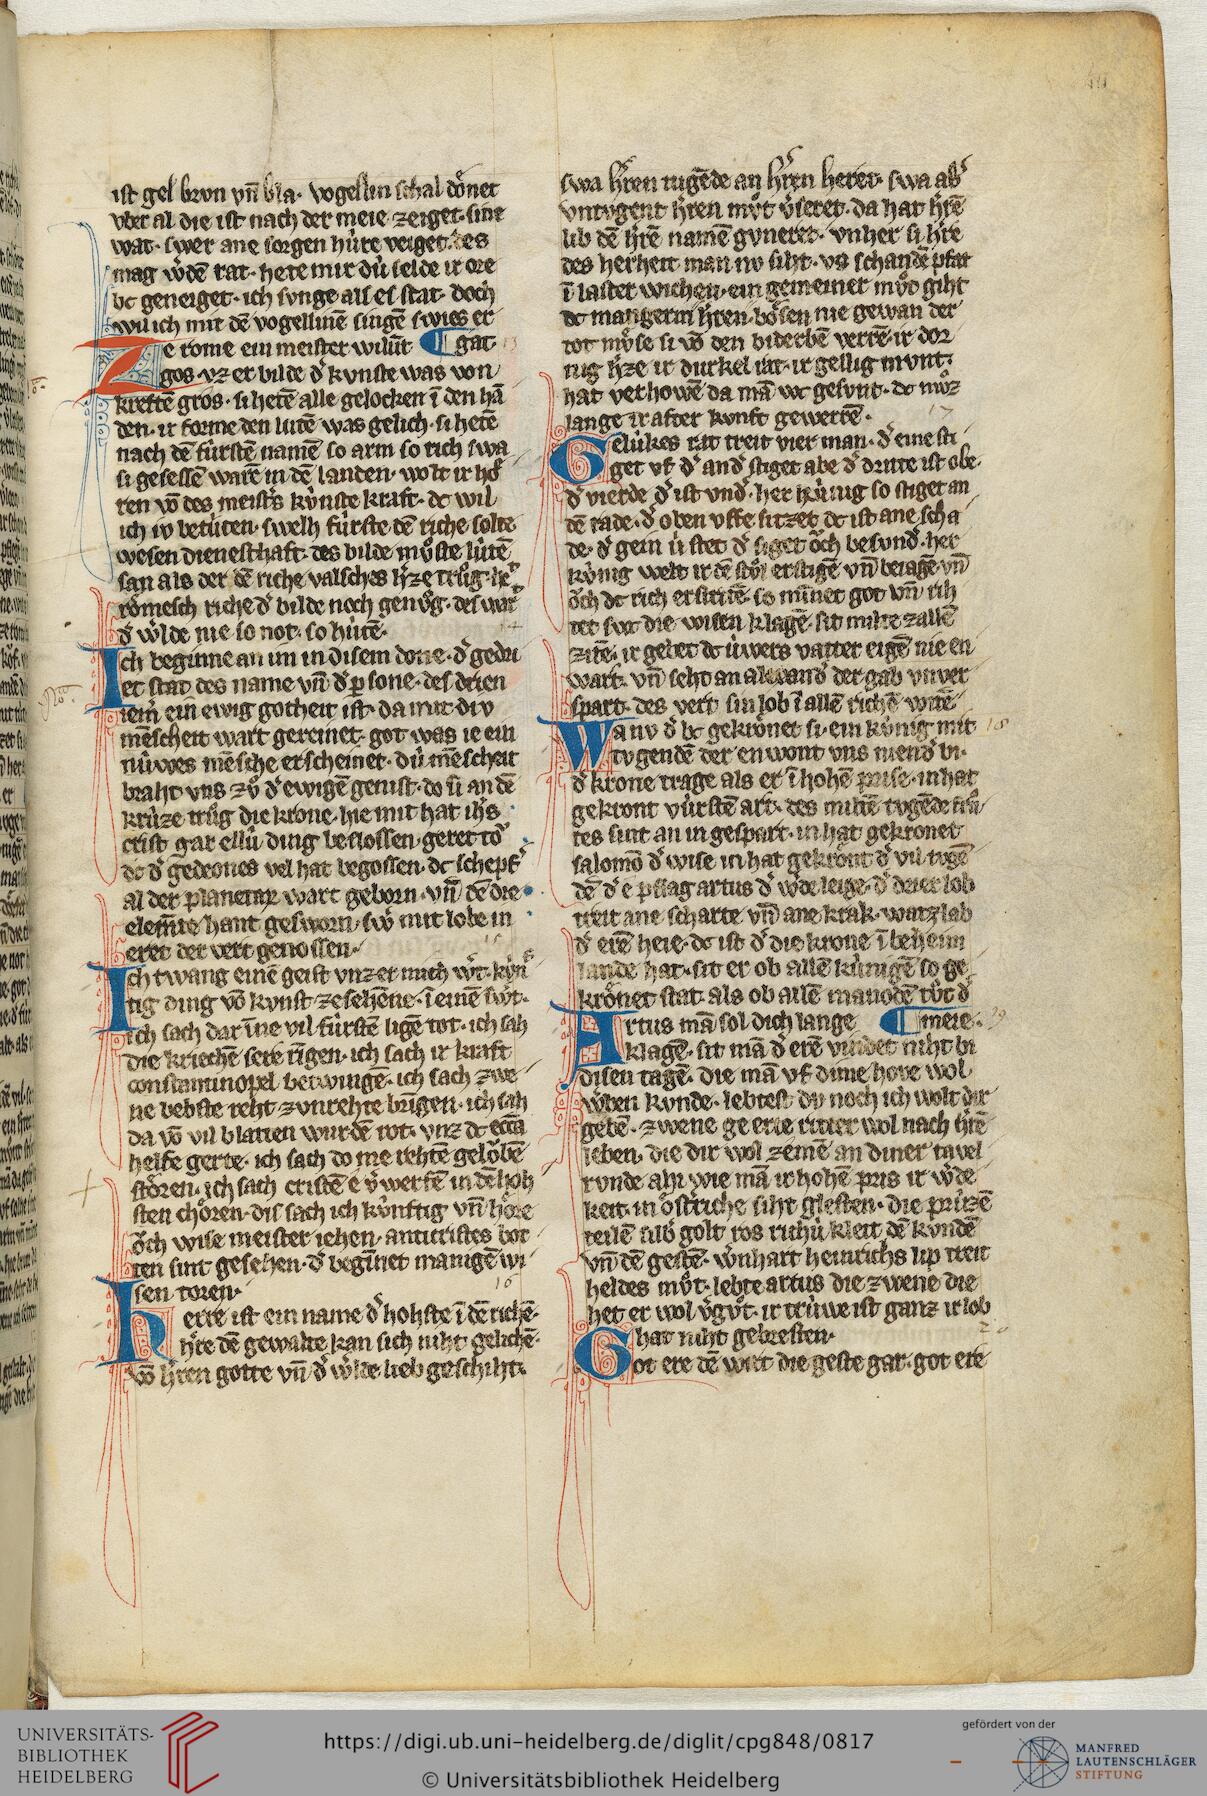 ist gel brvn vn̄ bla· vogellin schal dônet
vber al die ist nach der meie zeiget· sine
wat· swer ane sorgen hůre veiget· des
mag ẘdē rat· hete mir dů selde ir ore
bc geneiget· ich svnge als es stat· doch
wil ich mit dē vogellinē singē swies er
Ze rome ein meister wilūt ¶ gat·
gos· vz er bilde d͛ kvnste was von
kreftē gros· si hetē alle gelocken ī den hā
den· ir forme den lutē was gelich· si hetē
nach dē fúrstē namē so arm so rich swa
si gesessē warē in dē landen· wolt ir hô
ren vō des meist͛s kv́nste kraft· dc wil
ich iv betúten· swelh fúrste dē riche solte
wesen diensthaft· des bilde mv̊ste lútē
san als der dē riche valsches h͛ze trůg· he͛
rômesch riche d͛ bilde noch genv̊g· des wart
d͛ ẘlde nie so not· so hútē·
Ich beginne an im in disem done· d͛ gedri
et stat des name vn̄ d͛ psone· des drien
iem͛ ein ewig gotheit ist· da mit div
mēscheit wart gereinet· got was ie ein
núwes mēsche erscheinet· dú mēscheit
braht vns zv̊ d͛ ewigē genist· do si an dē
krúze trůg die krone· hie mit hat ih̄s
crist gar ellú ding beslossen· geret
dc d͛ gedeones vel hat begossen· dc schepf͛
al der planeten wart geborn· vn̄ dē drie
elemēte hant gesworn· sẘ mit lobe in
eret der vert genossen·
Ich twang einē geist vnz er mich ẘt· kv́n
ftig ding vō kvnst ze sehēne· ī einē sẘt·
ich sach dar īne vil fúrstē ligē tot· ich sah
die kriechē sere rīgen· ich sach ir kraft
constantinopel betwingē· ich sach zwe
ne bebste reht zvnrehte brīgen· ich sah
da vō vil blatten wurdē rot· vnz dc eccā
helfe gerte· ich sach do me rehtē gelôbē
stôren· ich sach cristē e v͛werfē in dē hoh
sten chôren· dis sach ich kv́nftig vn̄ hôre
ôch wise meister iehen· anticristes bot
ten sint gesehen· d͛ begīnet manigē wi
sen toren·
Herre ist ein name d͛ hohste ī dē richē·
h͛re dē gewalte kan sich niht gelichē·
vō h͛ren gotte vn̄ d͛ ẘlde lieb geschiht·
swa h͛ren tugēde an h͛ren heret· swa ab͛
vntvgent h͛ren mv̊t v͛seret· da hat h͛rē
lib dē h͛rē namē gvneret· vnher si h͛re
des herheit man nv siht· vā schandē pfat
ī laster wichen· ein gemeiner mv̊t giht
dc mangerin h͛ren· bôsen nie gewan der
tot mv̊se si vō den biderbē verrē· ir dor
nig h͛ze ir durkel rat· ir gellig mvnt·
hat verhowē da mā wc gesvnt· dc mv̊z
lange ir after kvnft gewerrē·
Gelúkes rat treit vier man· d͛ eine sti
get vf· d͛ and͛ stiget abe d͛ dritte ist obe·
d͛ vierde d͛ ist vnd͛· her kúnig so stiget an
dē rade· d͛ oben vffe sitzet dc ist ane scha
de· d͛ gern ú stet d͛ siget ôch besvnd͛· her
kúnig welt ir dē stôl erstigē vn̄ beiage· vn̄
ôch dc rich erstritē· so mīnet got vn̄ rih
tet swc die wisen klagē· sit milte zallē
zitē· ir gebet dc úwers vatter eigē nie en
wart· vn̄ seht an alexand͛ der gab vnver
spart· des vert sin lob ī allē richē witē·
Wa nv d͛ bc gekrônet si· ein kúnig mit
tvgendē der en wont vns niend͛ bi·
d͛ krone trage als er ī hohē prise· in hat
gekront vúrstē art· des miltē tvgēde
tes sint an in gespart· in hat gekronet
salomō d͛ wise in hat gekrônt d͛ vil tvgē
dē d͛ e pflag artus d͛ ẘde leige· d͛ drier lob
treit ane scharte vn̄ ane krak· watzlab
d͛ erē heie· dc ist d͛ die krone ī beheim
lande hat· sit er ob allē kúnigē so ge
krônet stat· als ob allē manodē tv̊t d͛
Artus mā sol dich lange ¶ meie·
klagē· sit mā d͛ erē vindet niht bi
disen tagē· die mā vf dime hove wol
ẘben kvnde· lebtest dv noch ich wolt dir
gebē· zwene ge erte ritter wol nach h͛rē
leben· die dir wol zemē an diner tavel
rvnde ahi wie mā ir hohē pris ir ẘde
keit· in ôst͛riche siht glesten· die prúzē
teilē silb͛ golt ros richú kleit dē kvndē
vn̄ dē gestē· ẘnhart heinrichs lip treit
heldes mv̊t· lebte artus die zwene die
het er wol v͛gv̊t· ir trúwe ist ganz ir lob
hat niht gebresten·
Got ere dē wirt die geste gar· got ere
UNIVERSITÄTS-
BIBLIOTHEK
HEIDELBERG
https://digi.ub.uni-heidelberg.de/diglit/cpg848/0817
© Universitätsbibliothek Heidelberg
gefördert von der
MANFRED
LAUTENSCHLÄGER
STIFTUNG